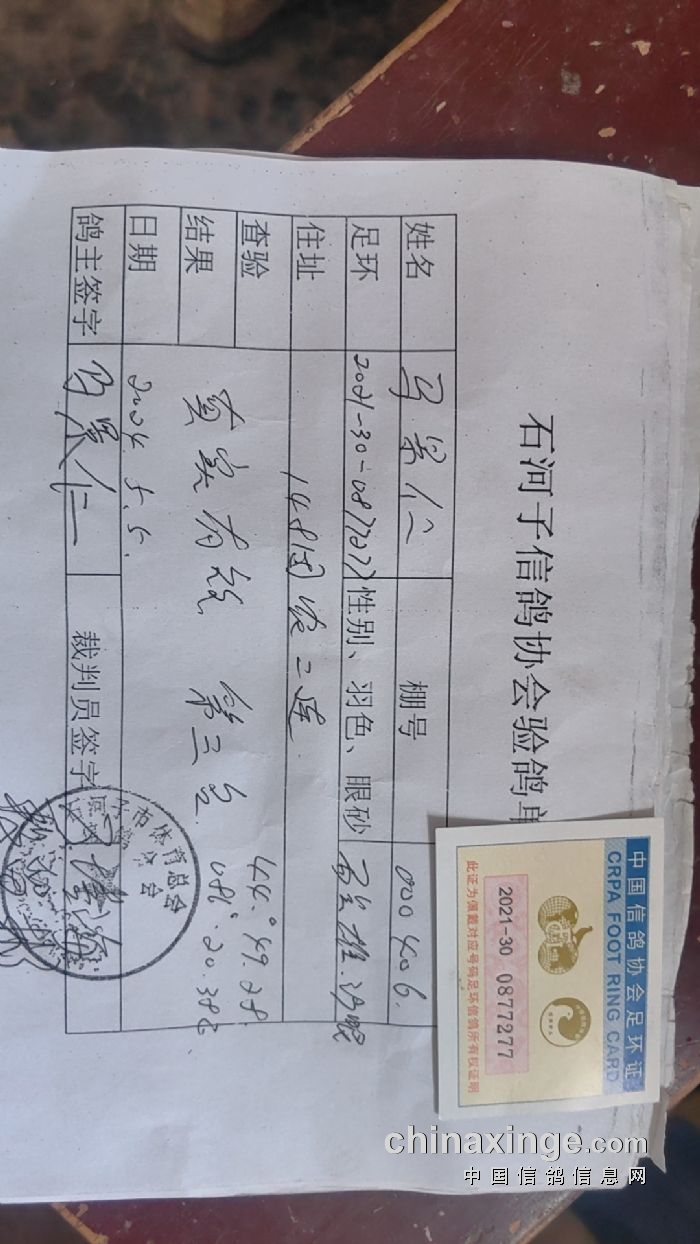 石河子信鸽协会验鸽单
姓名 马景仁 棚号 000406
足环 2021-30-0877277 性别、羽色、眼砂 雄.沙眼
住址 148团农二连
查验
结果 真实有效
44.°49.28
086.20.38
日期 2024.5.5.
鸽主签字 马景仁 裁判员签字
市体育总会
中国信鸽协会足环证
CRPA FOOT RING CARD
2021-30 0877277
此证为佩戴对应号码足环信鸽所有权证明
chinaxinge.com
中国信鸽信息网